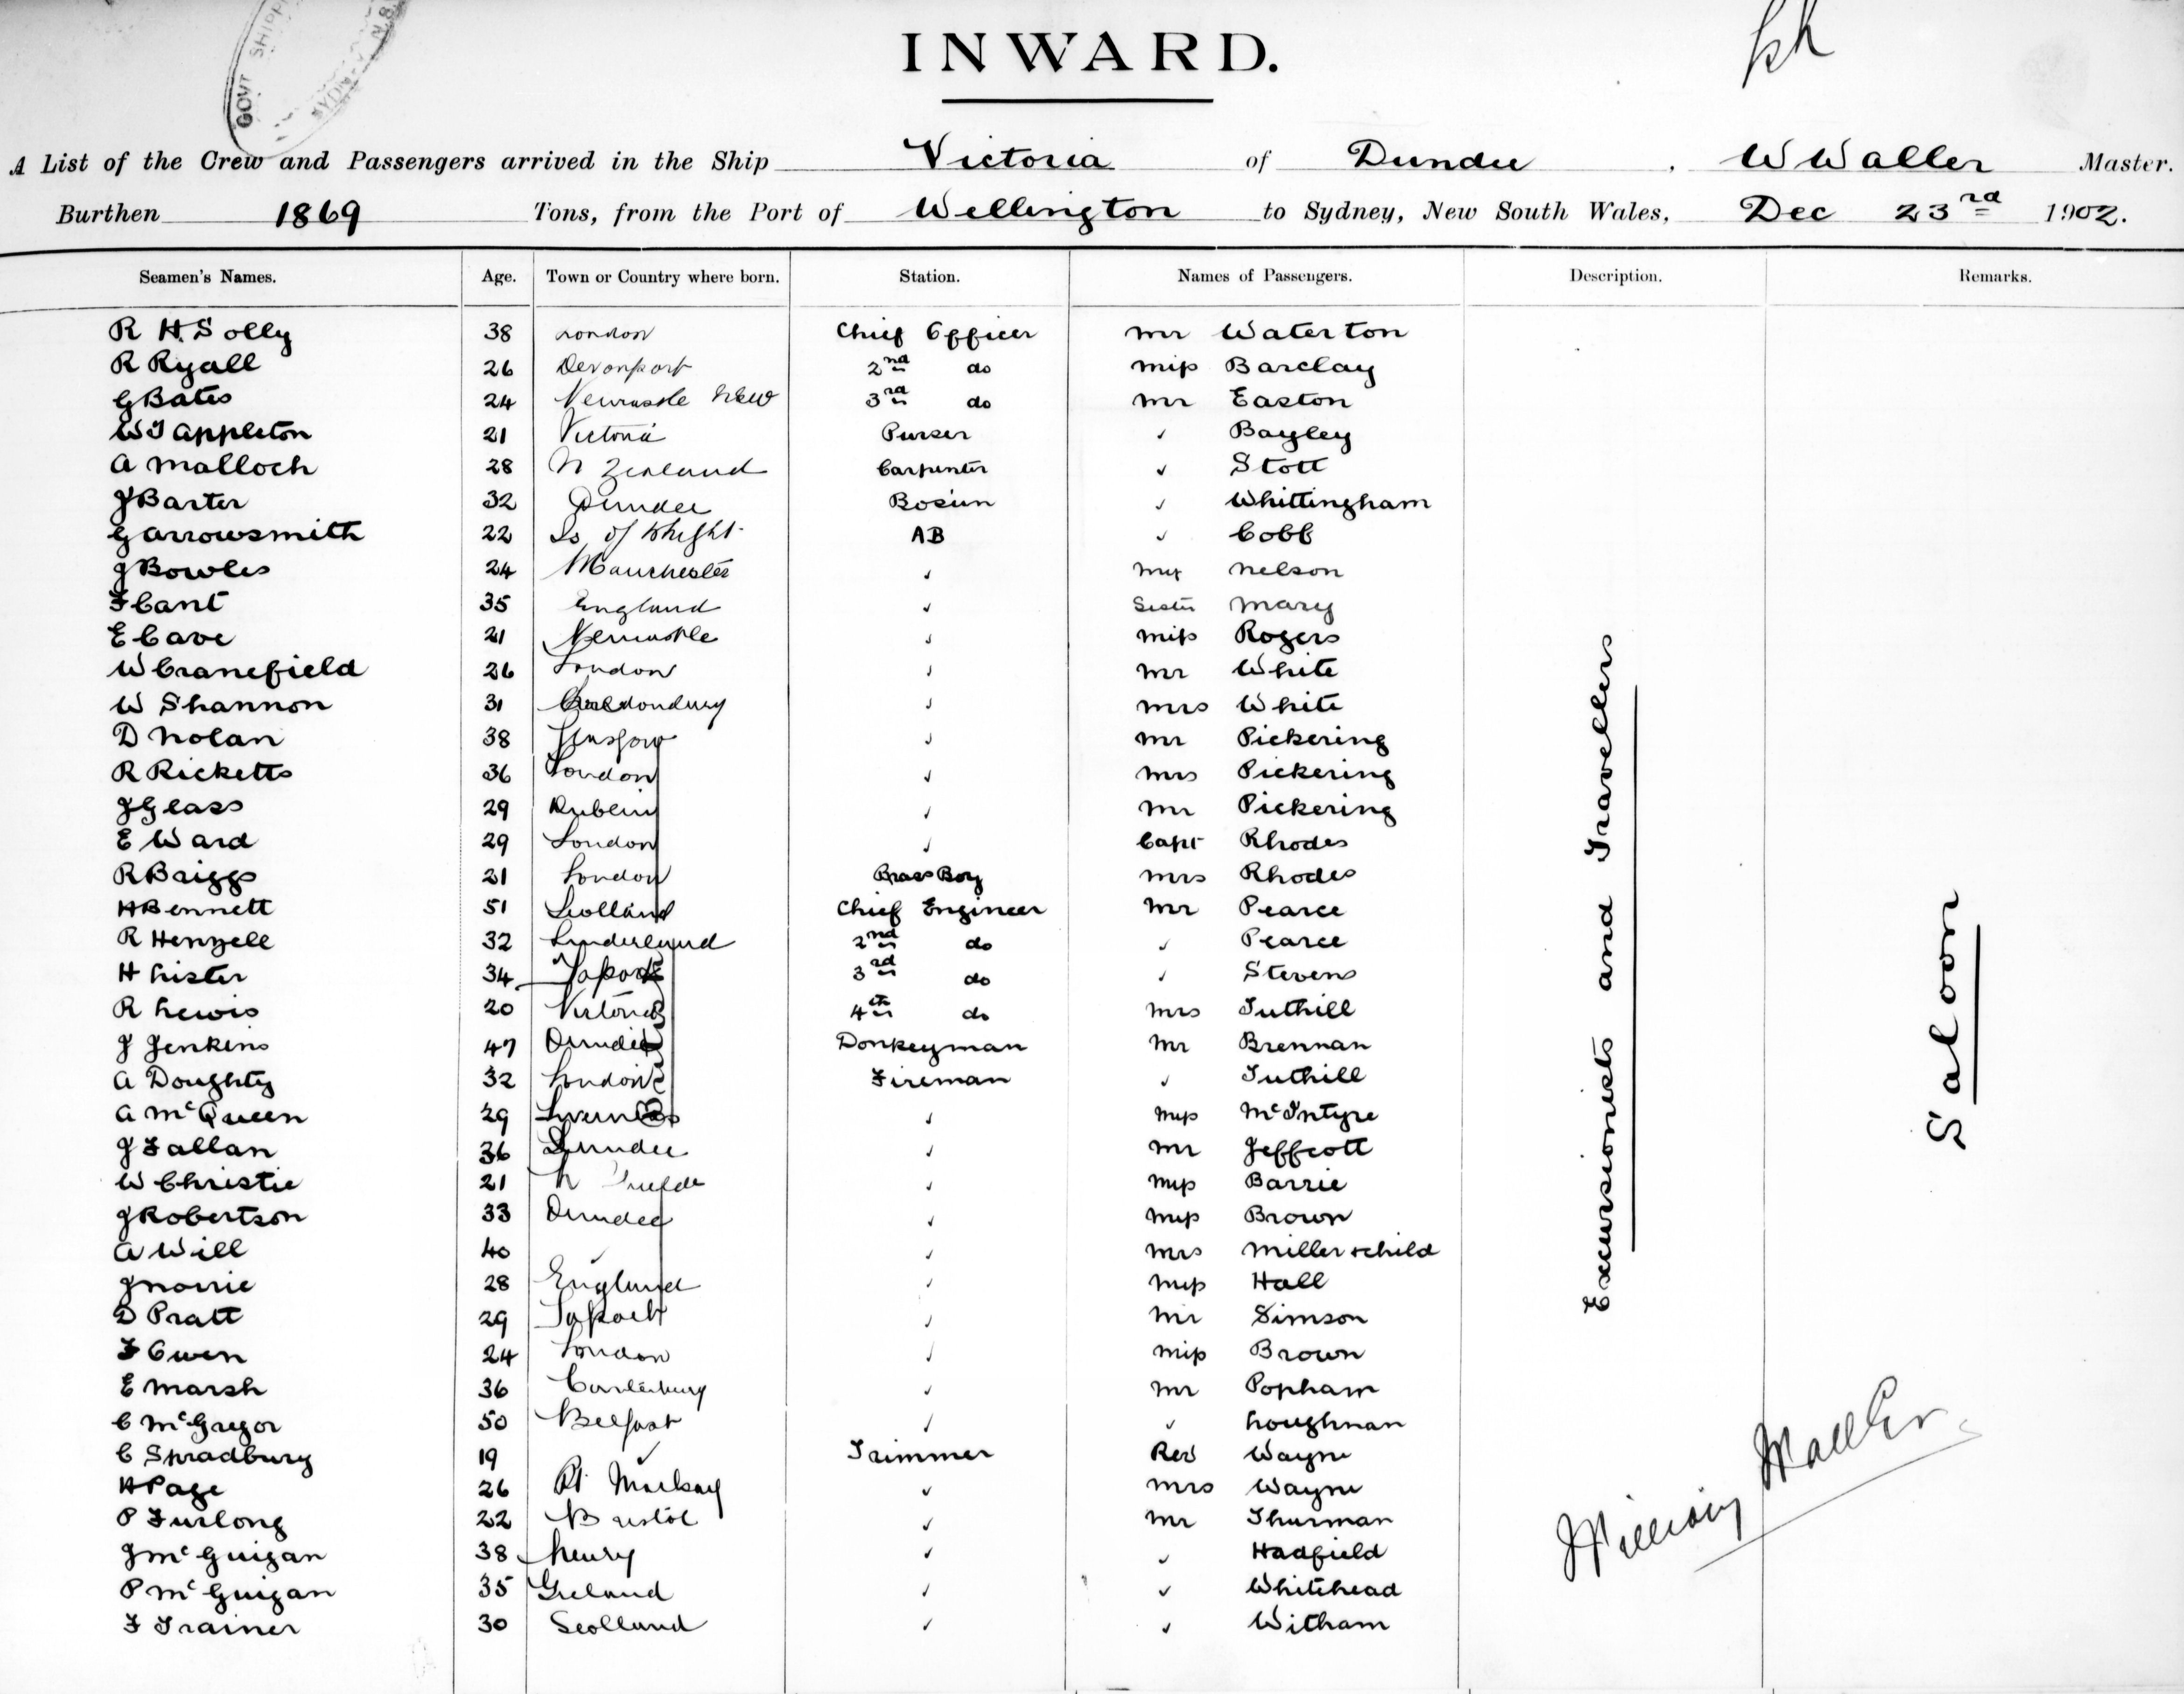 GOVT SHIPP
SYDNEY N.S.
INWARD.
A List of the Crew and Passengers arrived in the Ship Victoria of Dundee, W Waller Master.
Burthen 1869 Tons, from the Port of Wellington to Sydney, New South Wales, Dec 23rd 1902.
Seamen's Names. Age. Town or Country where born. Station. Names of Passengers. Description. Remarks.
R H. Solly 38 London Chief Officer Mr Waterton
R Ryall 26 Devonport 2nd do Miss Barclay
G Bates 24 Newcastle NSW 3rd do Mr Easton
W J Appleton 21 Victoria Purser ✓ Bayley
A Malloch 28 N Zealand Carpenter ✓ Stott
J Barter 32 Dundee Bosun ✓ Whittingham
G Arrowsmith 22 Is of Whight AB ✓ Cobb
J Bowles 24 Manchester ✓ Nelson
F Cant 35 England ✓ Sister Mary
E Cave 21 Newcastle ✓ Miss Rogers
W Cranefield 26 London ✓ Mr White
W Shannon 31 ✓ Mrs White
D Nolan 38 Glasgow ✓ Mr Pickering
R Ricketts 36 London ✓ Mrs Pickering
J Glass 29 Dublin ✓ Mr Pickering
E Ward 29 London ✓ Capt Rhodes
R Briggs 21 London Brass Boy Mrs Rhodes
H Bennett 51 Scotland Chief Engineer Mr Pearce
R Henzell 32 Sunderland 2nd do ✓ Pearce
H Lister 34 3rd do ✓ Stevens
R Lewis 20 Victoria 4th do Mrs Tuthill
J Jenkins 47 Dundee Donkeyman Mr Brennan
A Doughty 32 London Fireman ✓ Tuthill
A McQueen 29 Inverness ✓ Miss McIntyre
J Fallan 36 Dundee ✓ Mr Jeffcott
W Christie 21 ✓ Miss Barrie
J Robertson 33 Dundee ✓ Miss Brown
A Will 40 ✓ ✓ Mrs Miller & child
J Norrie 28 England ✓ Miss Hall
D Pratt 29 ✓ Mr Simson
F Owen 24 London ✓ Miss Brown
E Marsh 36 Canterbury ✓ Mr Popham
C McGregor 50 Belfast ✓ ✓ Loughnan
C Spradbury 19 ✓ Trimmer Rev Wayne
H Page 26 Pt Mackay ✓ Mrs Wayne
P Furlong 22 Bristol ✓ Mr Thurman
J McGuigan 38 Newry ✓ ✓ Hadfield
P McGuigan 35 Ireland ✓ ✓ Whitehead
F Trainer 30 Scotland ✓ ✓ Witham
Excursionists and Travellers
Saloon
William Waller